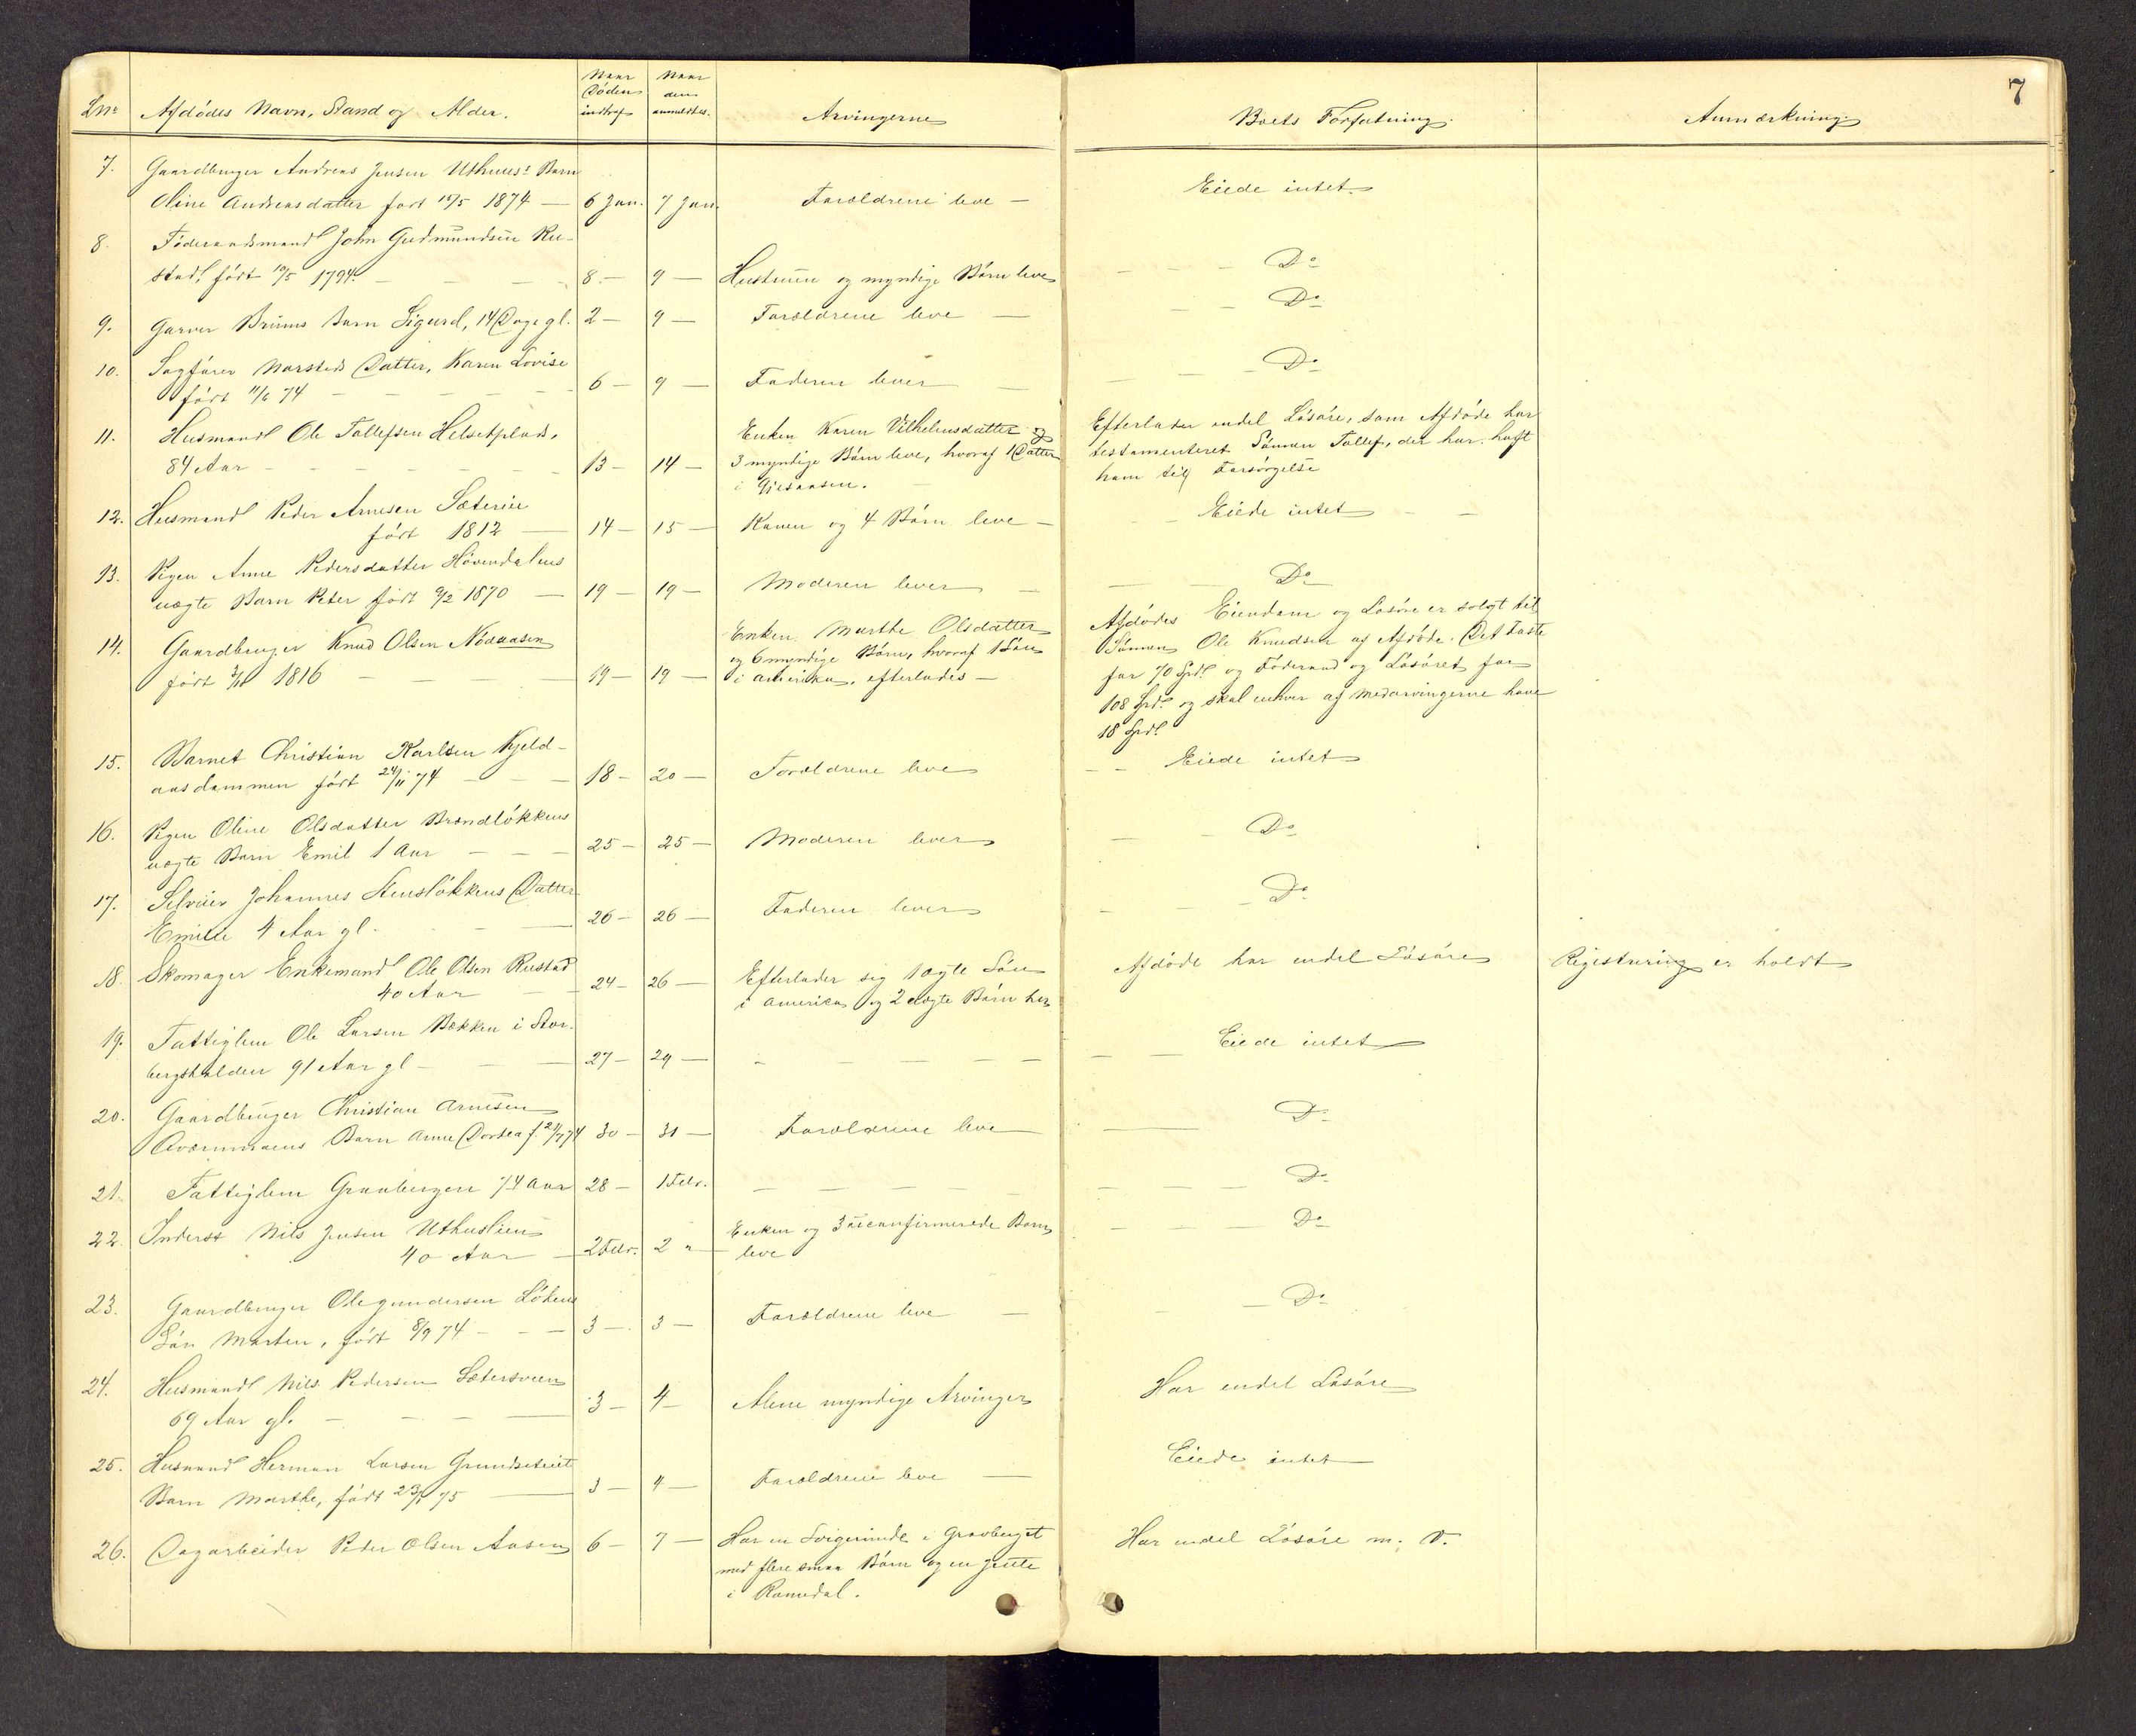 7
LNo Afdödes Navn, Stand og Alder. Naar Döden indtraf Naar den anmeldtes. Arvingerne Boets Forfatning. Anmærkning
7. Gaardbruger Andreas Jensen Uthuus's Barn
Oline Andreasdatter født 10/5 1874 — 6 Jan. 7 Jan. Forældrene leve — Eiede intet.
8. Föderaadsmand John Gudmundsen Ru-
stad, født 10/5 1794. — 8 — 9 — Hustruen og myndige Börn leve Do
9. Garver Bruuns Barn Sigurd, 14 Dage gl. 2 — 9 — Forældrene leve — Do
10. Sagfører Norsteds Datter, Karen Lovise
født 11/6 74 6 — 9 — Faderen lever Do
11. Husmand Ole Tollefsen Helsetplads,
84 Aar 13 — 14 — Enken Karen Vilhelmsdatter og
3 myndige Börn leve, hvoraf 1 Datter
i Gjesaasen.
Efterlader endel Lösöre, som Afdöde har
testamenteret Sönnen Tollef, der har haft
ham til Forsörgelse
12. Husmand Peder Arnesen Sæterne
født 1812 14 — 15 — Konen og 4 Börn leve — Eiede intet
13. Pigen Anne Pedersdatter Hövendalens
uægte Barn Peter født 9/2 1870 — 19 — 19 — Moderen lever Do
14. Gaardbruger Knud Olsen Nödaasen
født 3/10 1816 19 — 19 — Enken Marthe Olsdatter
og 6 myndige Börn, hvoraf 1 Sön
i Amerika, efterlades —
Afdödes Eiendom og Lösöre er solgt til
Sönnen Ole Knudsen af Afdöde. Det Faste
for 70 Spd. og Föderaad og Lösöret for
108 Spd. og skal enhver af Medarvingerne have
18 Spd.
15. Barnet Christian Karlsen Kjeld-
aasdammen født 24/11 74 18 — 20 — Forældrene leve Eiede intet
16. Pigen Oline Olsdatter Brændlökkens
uægte Barn Emil 1 Aar 25 — 25 — Moderen lever Do
17. Selveier Johannes Stenslökkens Datter
Emilie 4 Aar gl. 26 — 26 — Faderen lever Do
18. Skomager Enkemand Ole Olsen Rustad
40 Aar 24 — 26 — Efterlader sig 1 ægte Sön
i America og 2 uægte Börn her
Afdöde har endel Lösöre Registrering er holdt
19. Fattiglem Ole Larsen Bekken i Stor-
bergshalden 91 Aar gl — 27 — 29 — Eiede intet
20. Gaardbruger Christian Arnesen
Barn Anne Dorthea f. 21/7 74 30 — 31 — Forældrene leve Do
21. Fattiglem Graabergen 74 Aar 28 — 1 Febr. Do
22. Inderst Nils Jensen Uthuslien
40 Aar 2 Febr. 2 " Enken og 3 uconfirmerede Börn
leve Do
23. Gaardbruger Ole Gundersen Lökens
Sön Morten, født 8/9 74 3 — 3 — Forældrene leve Do
24. Husmand Nils Pedersen Sætersveen
69 Aar gl. 3 — 4 — Alene myndige Arvinger Har endel Lösöre
25. Husmand Herman Larsen Grundseteiet
Barn Marthe, født 23/1 75 3 — 4 — Forældrene leve — Eiede intet
26. Dagarbeider Peder Olsen Aasen 6 — 7 — Har en Svigerinde i Gravberget
med flere smaa Börn og en Jente
i Romedal.
Har endel Lösöre m. V.